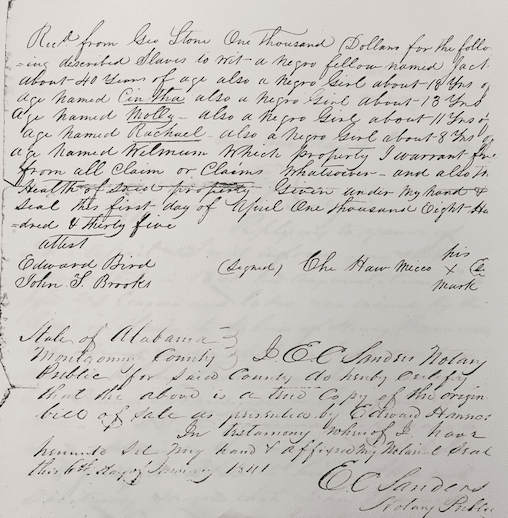 Recd. from Geo Stone One thousand Dollars for the follo
=ing described Slaves to wit a Negro fellow named Jack
about 40 Years of age also a Negro Girl about 18 Yrs of
age named Cintha also a Negro Girl about 13 Yrs
age named Molly - also a Negro Girl about 11 Yrs of
age named Rachael - also a Negro Girl about 8 Yrs of
age named Which property I warrant
from all Claim or Claims Whatsoever - and also in
Health of said property Given under my hand &
Seal this first day of April One thousand Eight Hu
=dred & thirty five
attest
Edward Bird (Signed) Che Haw Micco his
John S. Brooks x
mark
State of Alabama
Montgomery County I E C Sanders Notary
Public for Said County do hereby certify
that the above is a true Copy of the origin
bill of sale as presented by Edward
In testimony whereof I have
hereunto Set my hand & affixed my Notarial Seal
this 6th day of January 1841
E C Sanders
Notary Public